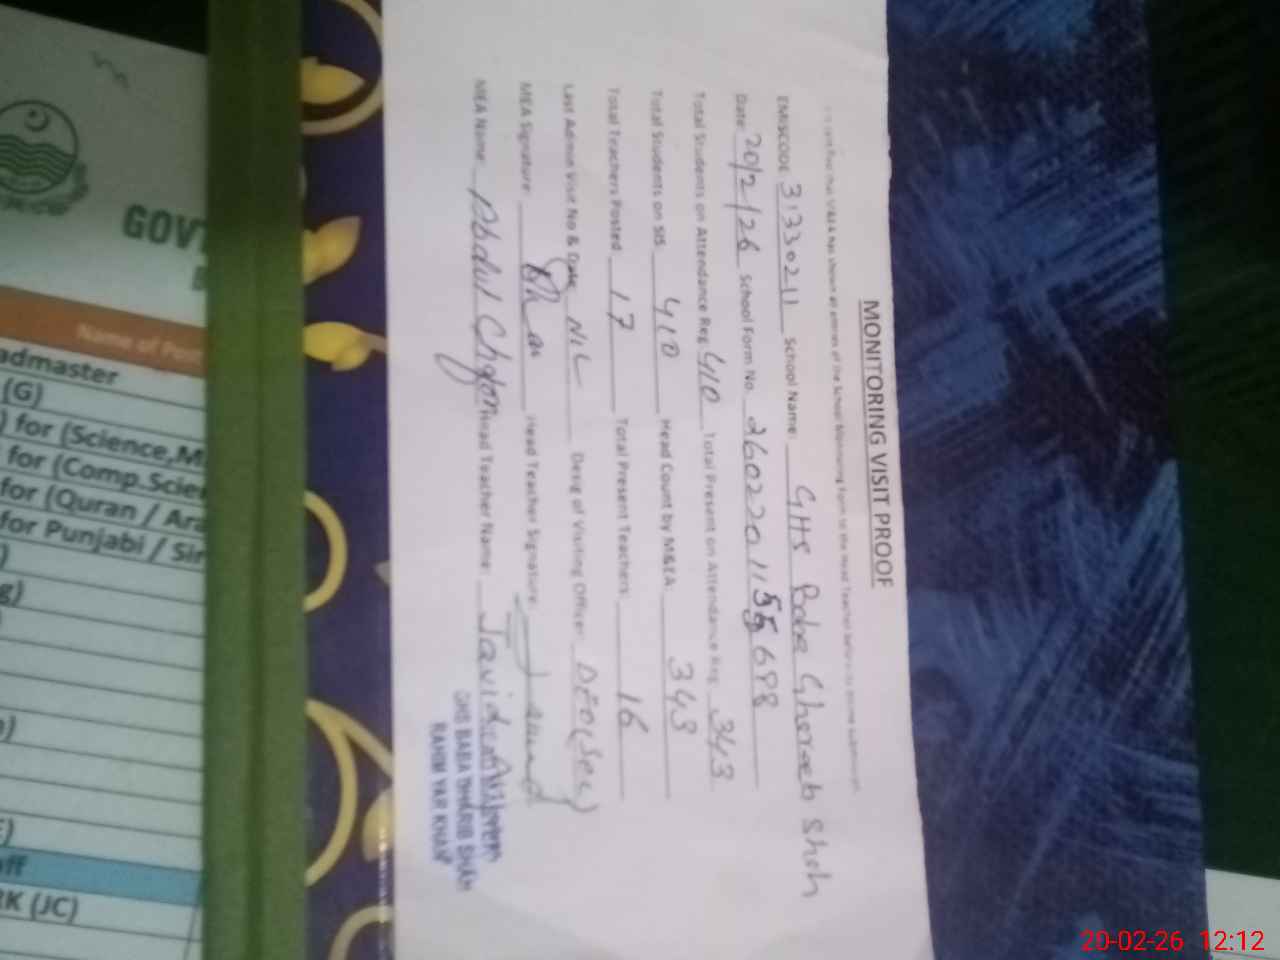 MONITORING VISIT PROOF
EMISCODE 31330211 School Name: GHS Baba Ghareeb Shah
Date 20/2/26 School Form No. 2602201155698
Total Students on Attendance Reg 410 Total Present on Attendance Reg 343
Total Students on SIS 410 Head Count by M&EA 343
Total Teachers Posted 17 Total Present Teachers 16
Last Admin Visit No & Date NIL Desig of Visiting Officer DEO(Sec)
MEA Signature Head Teacher Signature
MEA Name Abdul Ghafor Head Teacher Name Javid
GHS BABA GHARIB SHAH
RAHIM YAR KHAN
GOVT
Name of Post
admaster
(G)
) for (Science,M
for (Comp.Scie
for (Quran / Ara
for Punjabi / Sir
RK (JC)
20-02-26 12:12